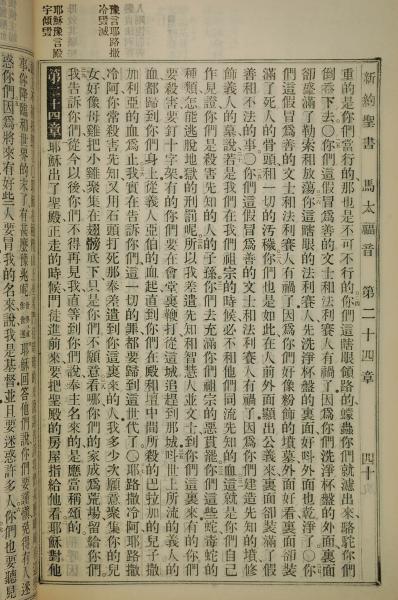 新約聖書　馬太福音　第二十四章　四十
重的是你們當行的那也是不可不行的你們這瞎眼領路的蠓蟲你們就濾出來駱駝你們
倒吞下去○你們這假冒爲善的文士和法利賽人有禍了因爲你們洗淨杯盤的外面裏面
卻盛滿了勒索和放蕩你這瞎眼的法利賽人先洗淨杯盤的裏面好叫外面也乾淨了○你
們這假冒爲善的文士和法利賽人有禍了因爲你們好像粉飾的墳墓外面好看裏面卻裝
滿了死人的骨頭和一切的汚穢你們也是如此在人前外面顯出公義來裏面卻裝滿了假
善和不法的事○你們這假冒爲善的文士和法利賽人有禍了因爲你們建造先知的墳修
飾義人的墓說若是我們在我們祖宗的時候必不和他們同流先知的血這就是你們自己
作見證你們是殺害先知的人的子孫你們去充滿你們祖宗的惡貫罷你們這些蛇毒蛇的
種類怎能逃脫地獄的刑罰呢所以我差遣先知和智慧人並文士到你們這裏來有的你們
要殺害要釘十字架有的你們要在會堂裏鞭打從這城追趕到那城叫世上所流的義人的
血都歸到你們身上從義人亞伯的血起直到你們在殿和壇中間所殺的巴拉加的兒子撒
加利亞的血爲止我實在告訴你們這一切的罪都要歸到這世代了○耶路撒冷阿耶路撒
冷阿你常殺害先知又用石頭打死那奉差遣到你這裏來的人我多少次願意聚集你的兒
女好像母雞把小雞聚集在翅髈底下只是你們不願意看哪你們的家成爲荒場留給你們
我告訴你們從今以後你們不得再見我直等到你們說奉主名來的是應當稱頌的
第二十四章　耶穌出了聖殿正走的時候門徒進前來要把聖殿的房屋指給他看耶穌對他
事你降臨和世界的末了有甚麼豫兆呢耶穌回答他們說你們要謹愼免得有人迷
惑你們因爲將來有好些人要冒我的名來說我是基督並且要迷惑許多人你們也要聽見
豫言耶路撒
冷毀滅
耶穌豫言殿
宇傾毀